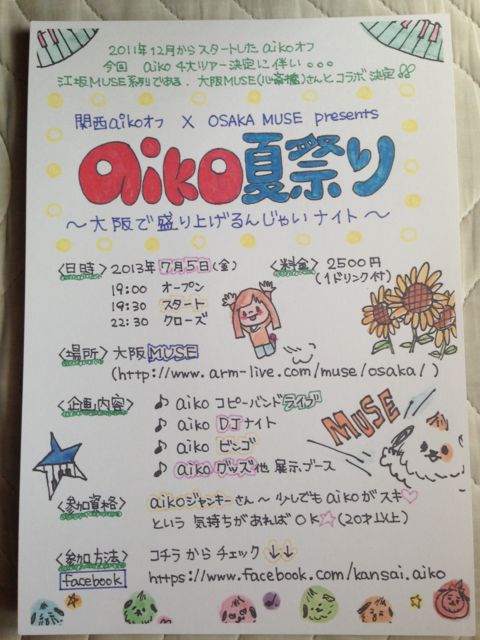 2011年12月からスタートしたaikoオフ
今回 aiko 4大ツアー決定に伴い。。。
江坂MUSE系列である、大阪MUSE(心斎橋)さんとコラボ決定!!
関西aikoオフ X OSAKA MUSE presents
aiko夏祭り
～大阪で盛り上げるんじゃいナイト～
〈日時〉2013年7月5日(金)
19:00 オープン
19:30 スタート
22:30 クローズ
〈料金〉2500円
(1ドリンク付)
〈場所〉大阪MUSE
(http://www.arm-live.com/muse/osaka/)
〈企画内容〉♪ aiko コピーバンドライブ
♪ aiko DJナイト
♪ aiko ビンゴ
♪ aiko グッズ他 展示ブース
MUSE
〈参加資格〉aikoジャンキーさん～少しでもaikoがスキ♡
という気持ちがあればOK☆(20才以上)
〈参加方法〉コチラからチェック↓↓
facebook https://www.facebook.com/kansai.aiko